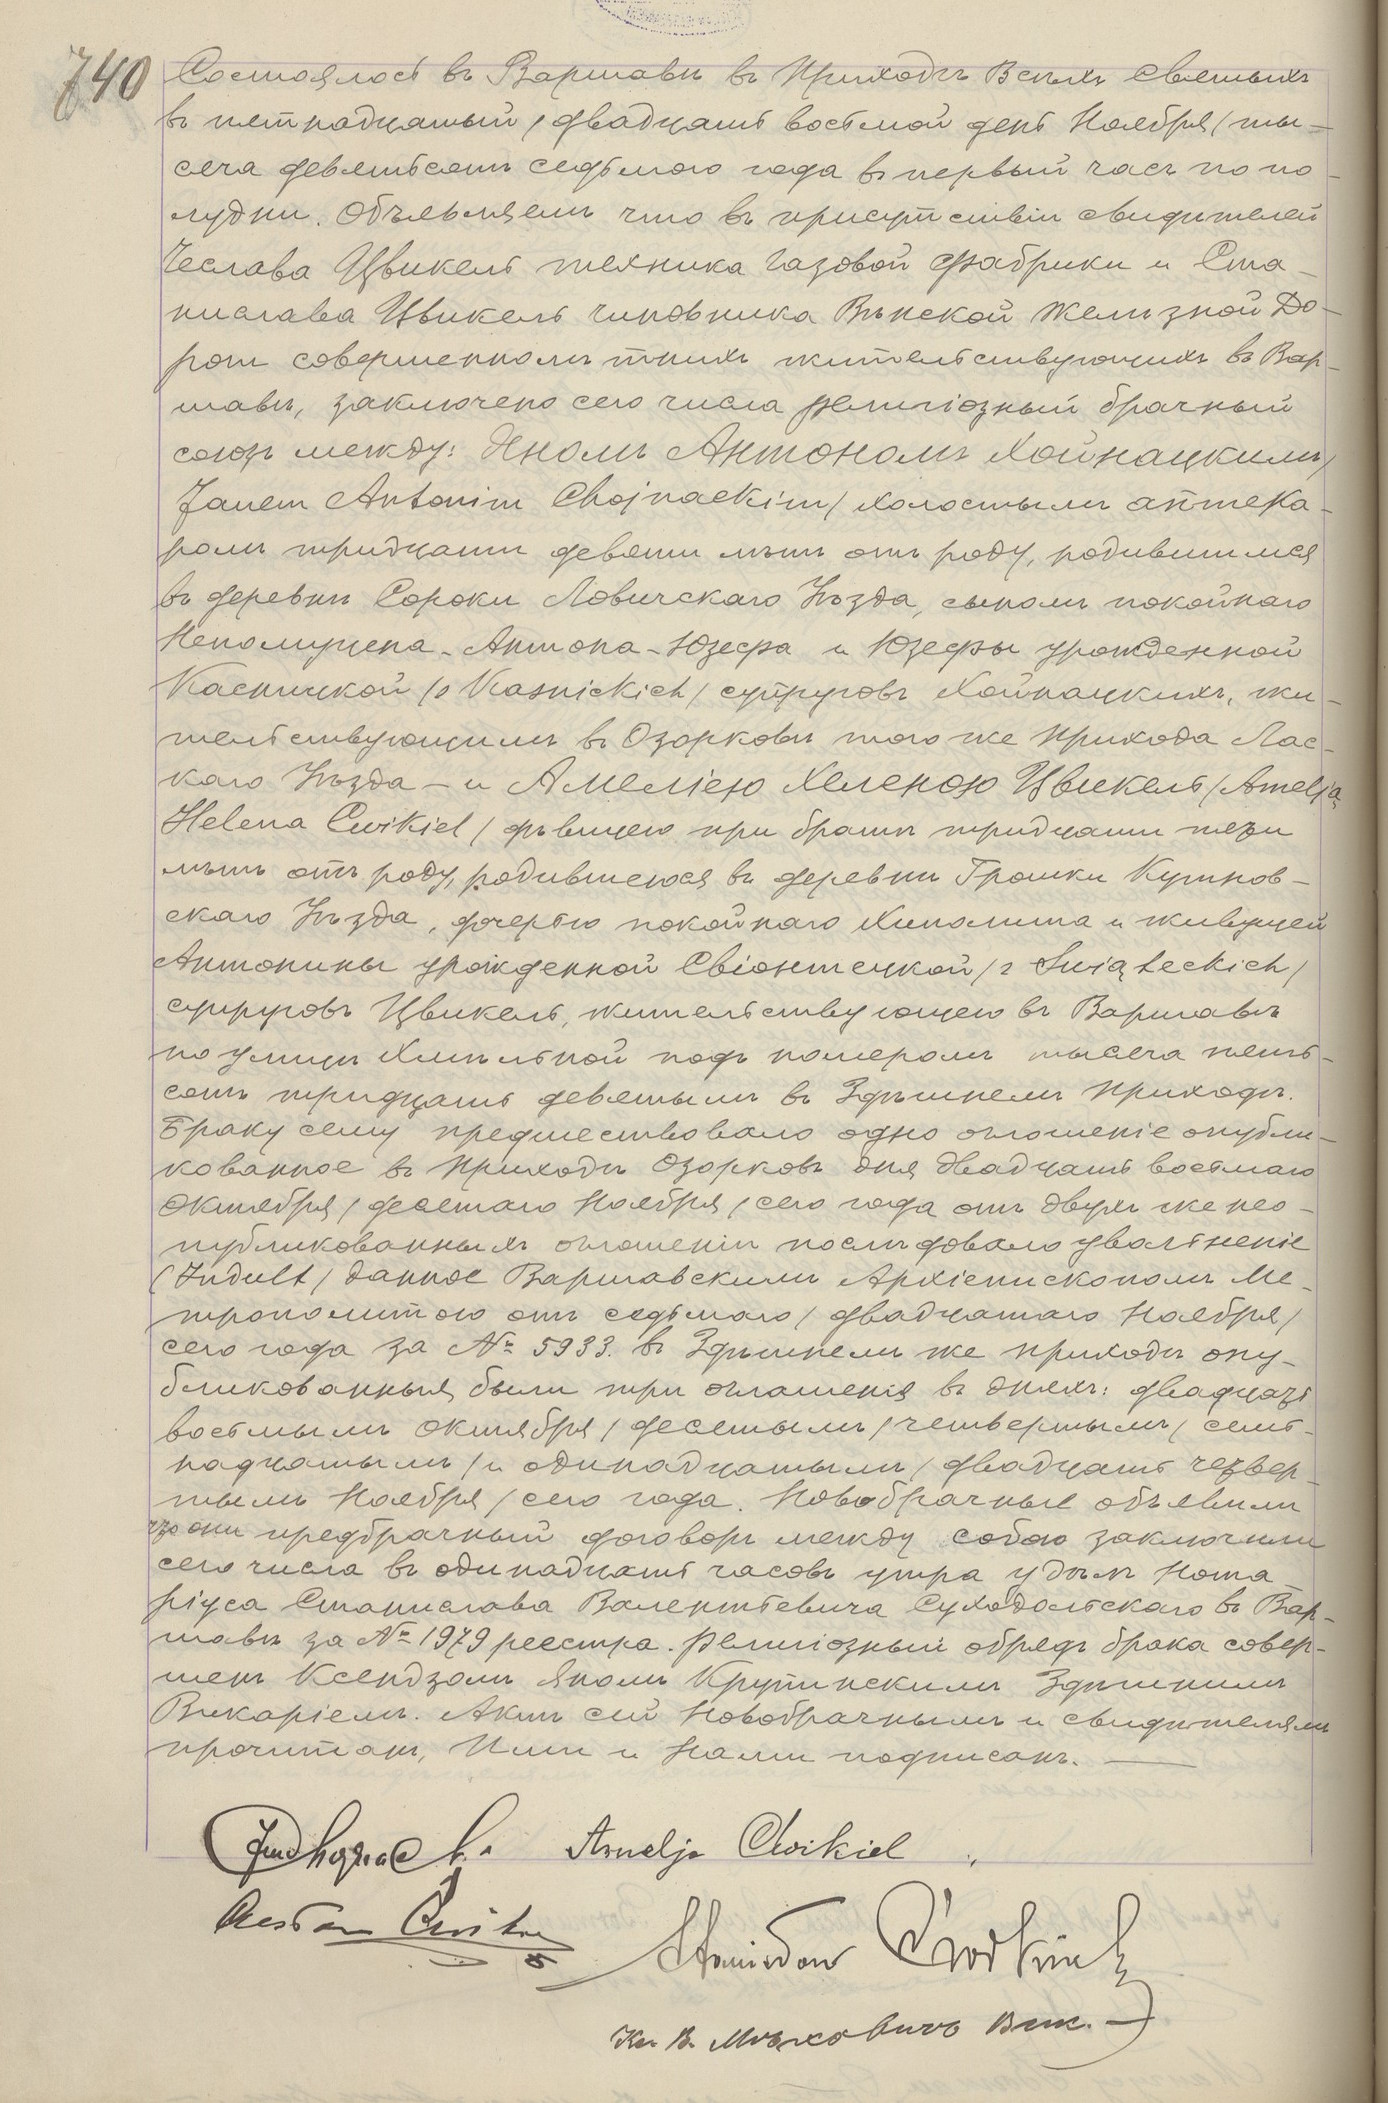 740
Состоялось въ Варшавѣ въ Приходѣ Всѣхъ Святыхъ
въ пятнадцатый / двадцать восьмой день Ноября / ты-
сяча девятьсотъ седьмого года въ первый часъ по по-
лудни. Объявляемъ что въ присутствіи свидѣтелей
Чеслава Цвикель техника Газовой фабрики и Ста-
нислава Цвикель чиновника Вѣнской Желѣзной До-
роги совершеннолѣтнихъ жительствующихъ въ Вар-
шавѣ, заключено сего числа религіозный брачный
союзъ между: Яномъ Антономъ Хойнацкимъ /
Janem Antonim Chojnackim / холостымъ аптека-
ремъ тридцати девяти лѣтъ отъ роду, родившимся
въ деревнѣ Сороки Ловичскаго Уѣзда, сыномъ покойнаго
Непомуцена-Антона-Юзефа и Юзефы урожденной
Касницкой / z Kasnickich / супруговъ Хойнацкихъ, жи-
тельствующимъ въ Озорковѣ того же Прихода Лас-
каго Уѣзда - и Амеліею Хеленою Цвикель / Amelją
Helena Cwikiel / дѣвицею при братѣ тридцати трехъ
лѣтъ отъ роду, родившеюся въ деревнѣ Грошки Кутнов-
скаго Уѣзда, дочерью покойнаго Хиполита и живущей
Антонины урожденной Свіонтецкой / z Swiąteckich /
супруговъ Цвикель, жительствующею въ Варшавѣ
по улицѣ Хмѣльной подъ номеромъ тысяча пять-
сотъ тридцать девятымъ въ Здѣшнемъ Приходѣ.
Браку сему предшествовало одно оглошеніе опубли-
кованное въ Приходѣ Озорковъ дня двадцать восьмаго
Октября / десятаго Ноября / сего года отъ двухъ же нео-
публикованныхъ оглошеніи послѣдовало увольненіе
(Indult / данное Варшавскимъ Архіепископомъ Ме-
трополитою отъ седьмаго / двадцатаго Ноября /
сего года за № 5933. въ Здѣшнемъ же приходѣ опу-
бликованныя были три оглашенія въ дняхъ: двадцать
восьмымъ Октября / десятымъ / четвертымъ / семь-
надцатымъ / и одинадцатымъ / двадцать четвер-
тымъ Ноября / сего года. Новобрачные объявили
что они предбрачный договоръ между собою заключили
сего числа въ одинадцать часовъ утра у дѣлъ Нота
ріуса Станислава Валентьевича Суходольскаго въ Вар-
шавѣ за № 1979 реестра. Религіозный обрядъ брака совер-
шенъ Ксендзомъ Яномъ Крупинскимъ Здѣшнимъ
Викаріемъ. Актъ сей Новобрачнымъ и свидѣтелямъ
прочитанъ, Ими и Нами подписанъ. —
Amelja Cwikiel
Czesław Cwikiel
Stanisław Ćwikiel
Кс. В. Мѣховичъ Вик.